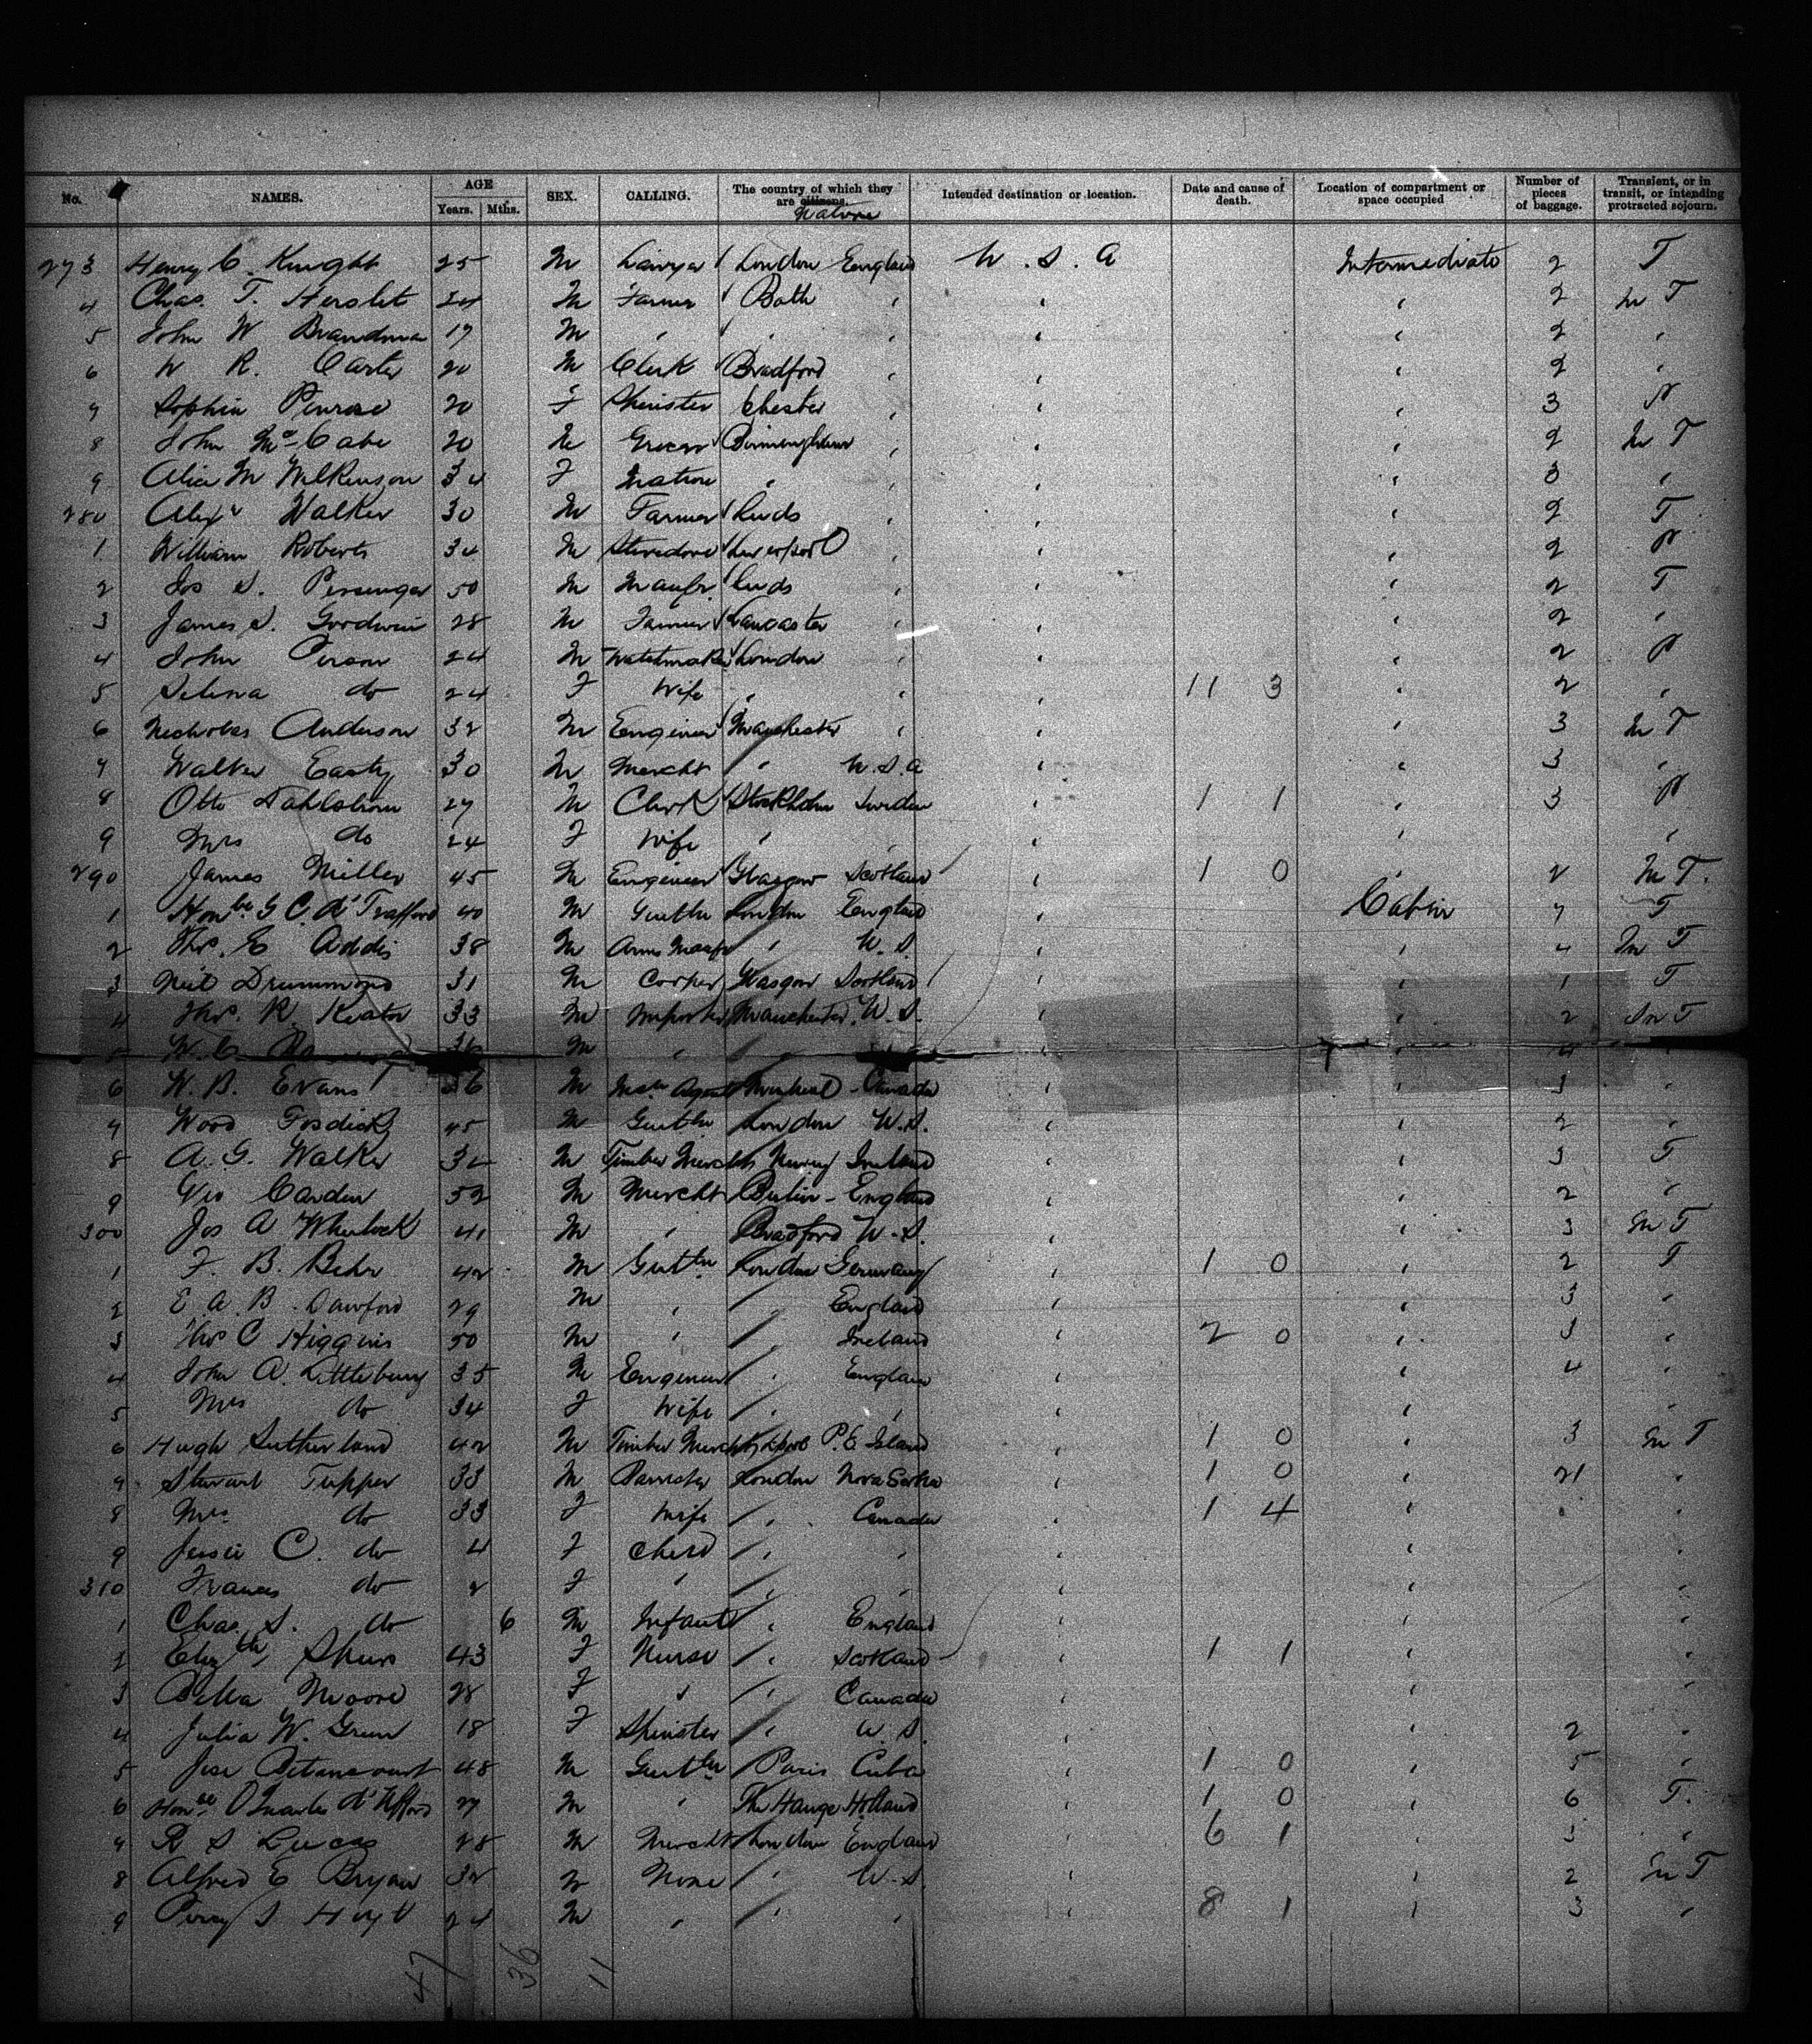 No. NAMES. AGE Years. Mths. SEX. CALLING. The country of which they are citizens. Native Intended destination or location. Date and cause of death. Location of compartment or space occupied Number of pieces of baggage. Transient, or in transit, or intending protracted sojourn.
273 Henry C. Knight 25 M Lawyer London England U.S.A Intermediate 2 T
4 Chas. T. Herslet 24 M Farmer Bath " " " 2 In T
5 John W 19 M " " " " 2 "
6 W R. Carter 20 M Clerk Bradford " " " 2 "
7 Sophia Penrose 20 F Spinster Chester " " " 3 P
8 John McCabe 20 M Grocer Birmingham " " " 2 In T
9 Alice M Wilkinson 34 F Matron " " " 3 "
280 Alexr Walker 30 M Farmer Leeds " " " 2 T
1 William Roberts 34 M Stevedore Liverpool " " " 2 P
2 Jos S. 50 M Manfr. Leeds " " " 2 T
3 James S. Goodwin 28 M Farmer Lancaster " " " 2 "
4 John Person 24 M Watchmaker London " " " 2 P
5 Selena do 24 F Wife " " " 11 3 " 2 "
6 Nicholas Anderson 32 M Engineer Manchester " " " 3 In T
7 Walter Easty 30 M Mercht " U.S.A " " 3 "
8 Otto Dahlstrom 27 M Clerk Stockholm Sweden " 1 1 " 3 P
9 Mrs do 24 F Wife " " " " "
290 James Miller 45 M Engineer Glasgow Scotland " 1 0 " 2 In T.
1 Honble G C. d'Trafford 40 M Gentln London England " Cabin 7 T
2 Thos. E Addis 38 M " U.S. " " 4 In T
3 Neil Drummond 31 M Cooper Glasgow Scotland " " 1 T
4 Thos. R. Keator 33 M Importer Manchester U.S. " " 2 In T
5 W. C. 36 M " " " " 4 "
6 W. B. Evans 36 M Agent Montreal - Canada " " 3 "
7 Wood Fosdick 45 M Gentln London U.S. " " 2 "
8 A. G. Walker 32 M Timber Mercht Newry Ireland " " 3 T
9 Geo Carden 52 M Mercht England " " 2 "
300 Jos A Wheelock 41 M " Bradford U.S. " " 3 In T
1 F. B. Behr 42 M Gentln London Germany " 1 0 " 2 T
2 E. A. B. 29 M " " England " 3 "
3 Thos C Higgins 50 M " " Ireland " 2 0 " 3 "
4 John A. Littlebury 35 M Engineer " England " " 4 "
5 Mrs do 34 F Wife " " " " "
6 Hugh Sutherland 42 M Timber Mercht Lpool P.E. Island " 1 0 " 3 In T
7 Stewart Tupper 33 M Barrister London Nova Scotia " 1 0 " 21 "
8 Mrs do 33 F Wife " Canada " 1 4 " " "
9 Jessie C. do 4 F Child " " " " "
310 Frances do 2 F " " " " " "
1 Chas. S. do 6 M Infant " England " " "
2 Elizth 43 F Nurse " Scotland " 1 1 " "
3 Bella Moore 28 F " " Canada " " "
4 Julia W. Green 18 F Spinster " U.S. " " 2 "
5 Jose Betancourt 48 M Gentln Paris Cuba " 1 0 " 5 "
6 27 M " The Hague Holland " 1 0 " 6 T.
7 R S Lucas 28 M Mercht London England " 6 1 " 3 "
8 Alfred E Bryan 32 M None " U.S. " " 2 In T
9 Percy S Hoyt 24 M " " " " 8 1 " 3 "
47 36 11